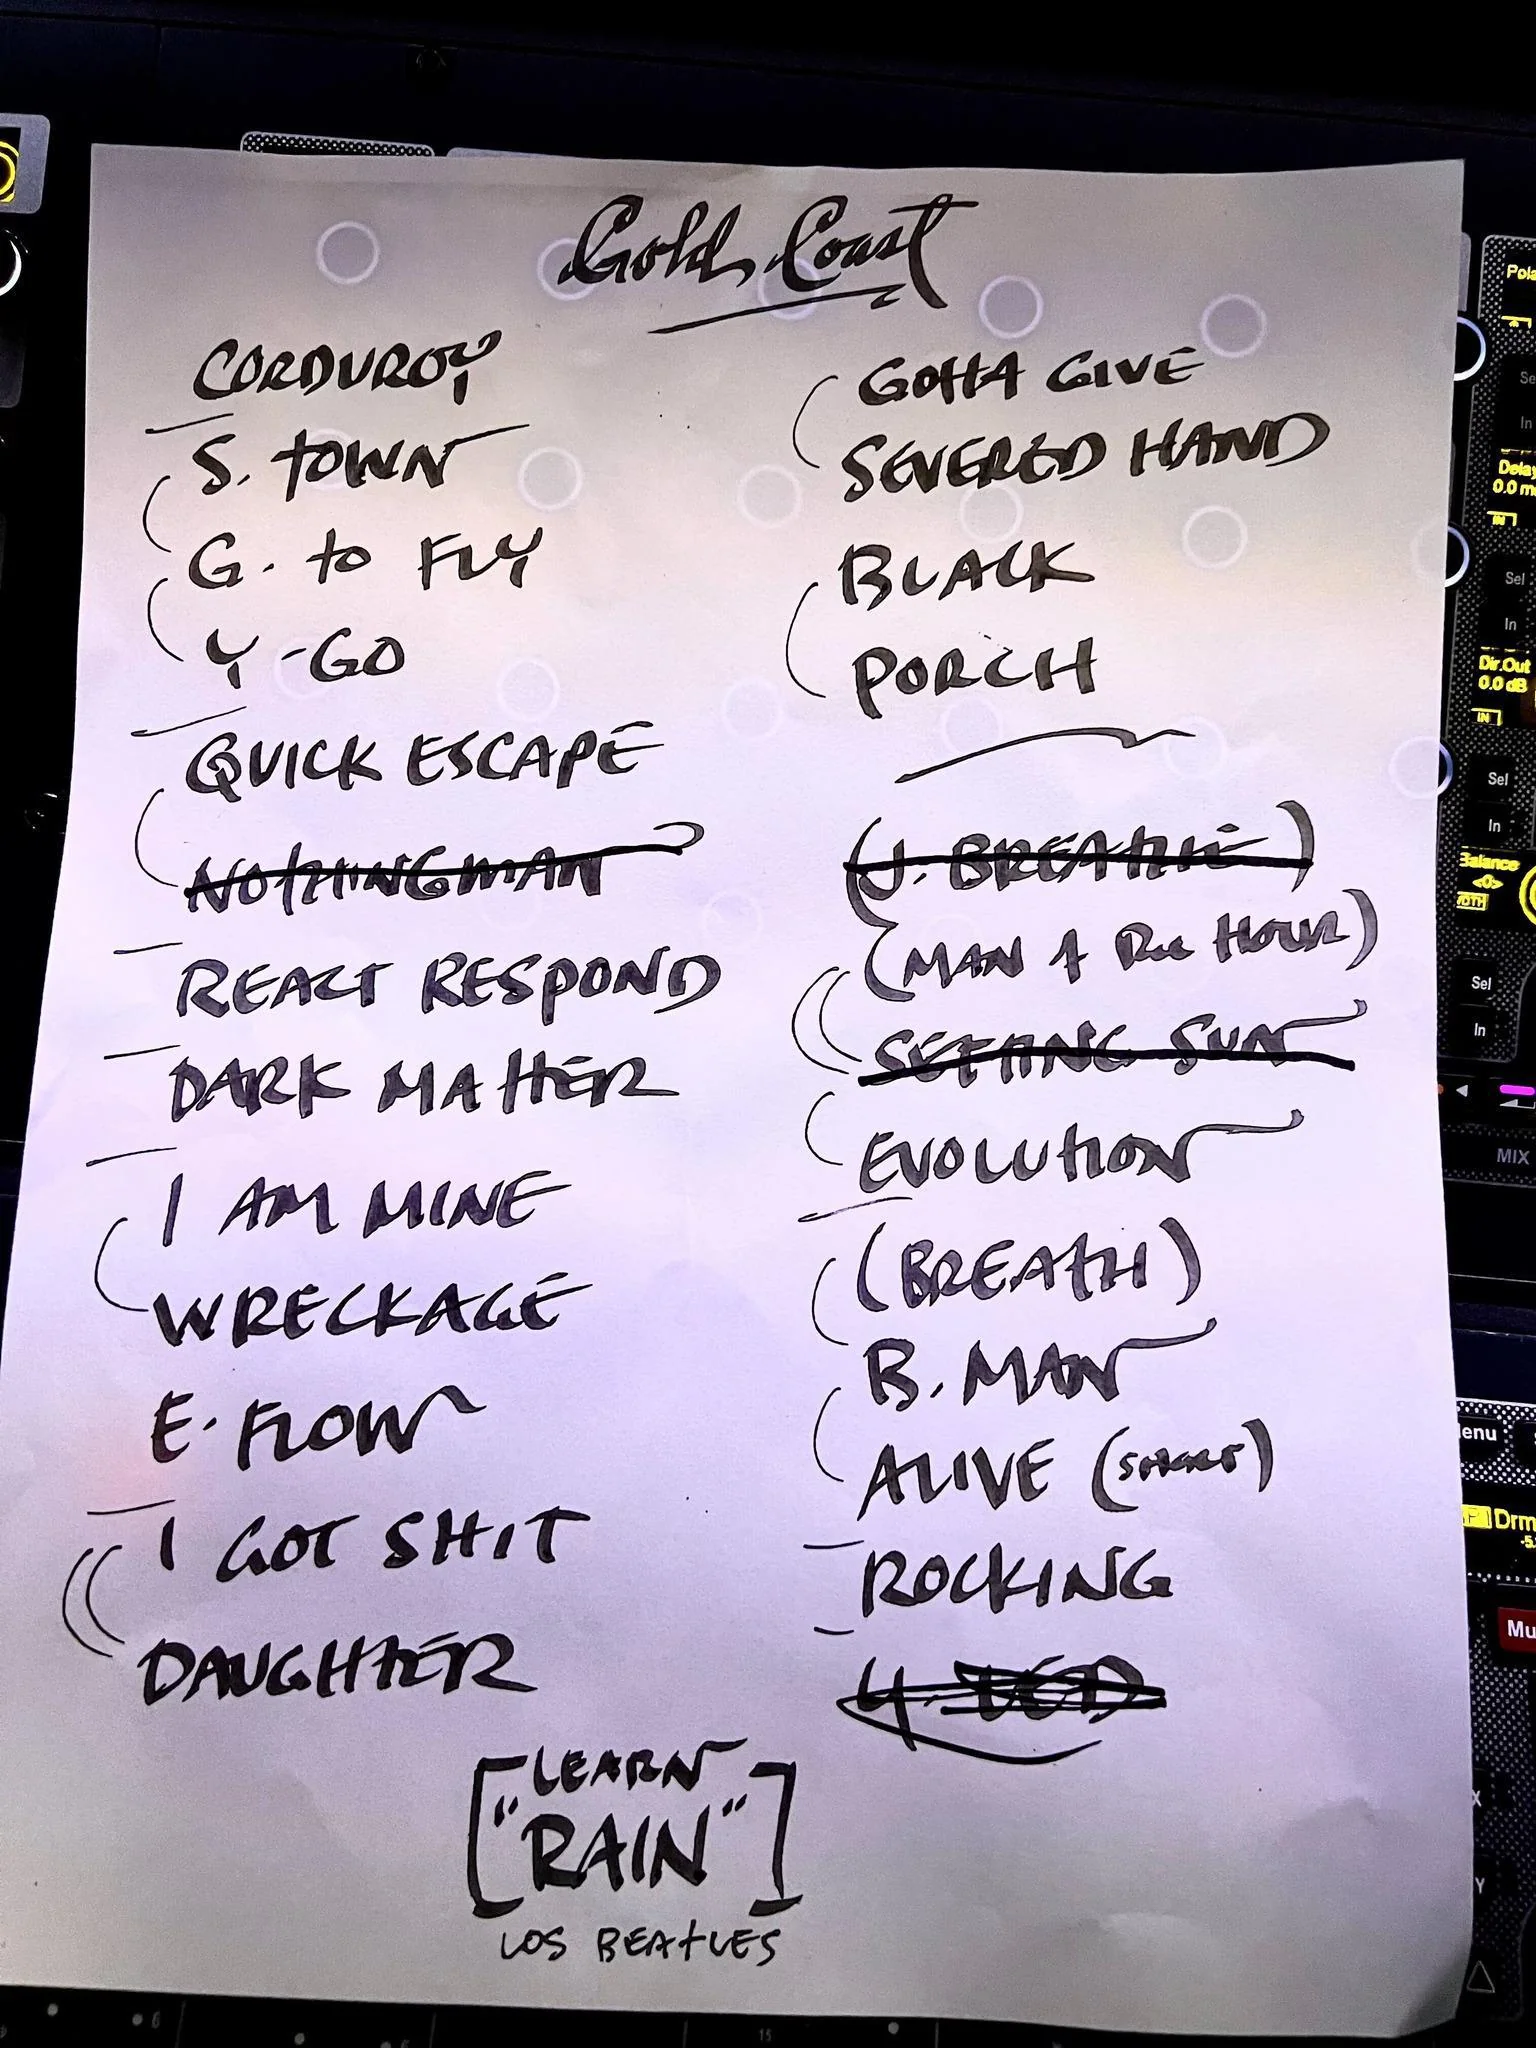 Gold Coast
CORDUROY
S. TOWN
G. to FLY
Y-GO
QUICK ESCAPE
NOTHINGMAN
REACT RESPOND
DARK MATTER
I AM MINE
WRECKAGE
E. FLOW
I GOT SHIT
DAUGHTER
GOTTA GIVE
SEVERED HAND
BLACK
PORCH
(J. BREATHE)
(MAN HOUR)
SETTING SUN
EVOLUTION
(BREATH)
B. MAN
ALIVE (SHORT)
ROCKING
Y. LED
[LEARN
"RAIN"]
LOS BEATLES
Sel
In
Delay
IN
Sel
In
Dir.Out
0.0 dB
IN
Sel
In
Balance
<0>
Sel
In
MIX
Drm
15
6